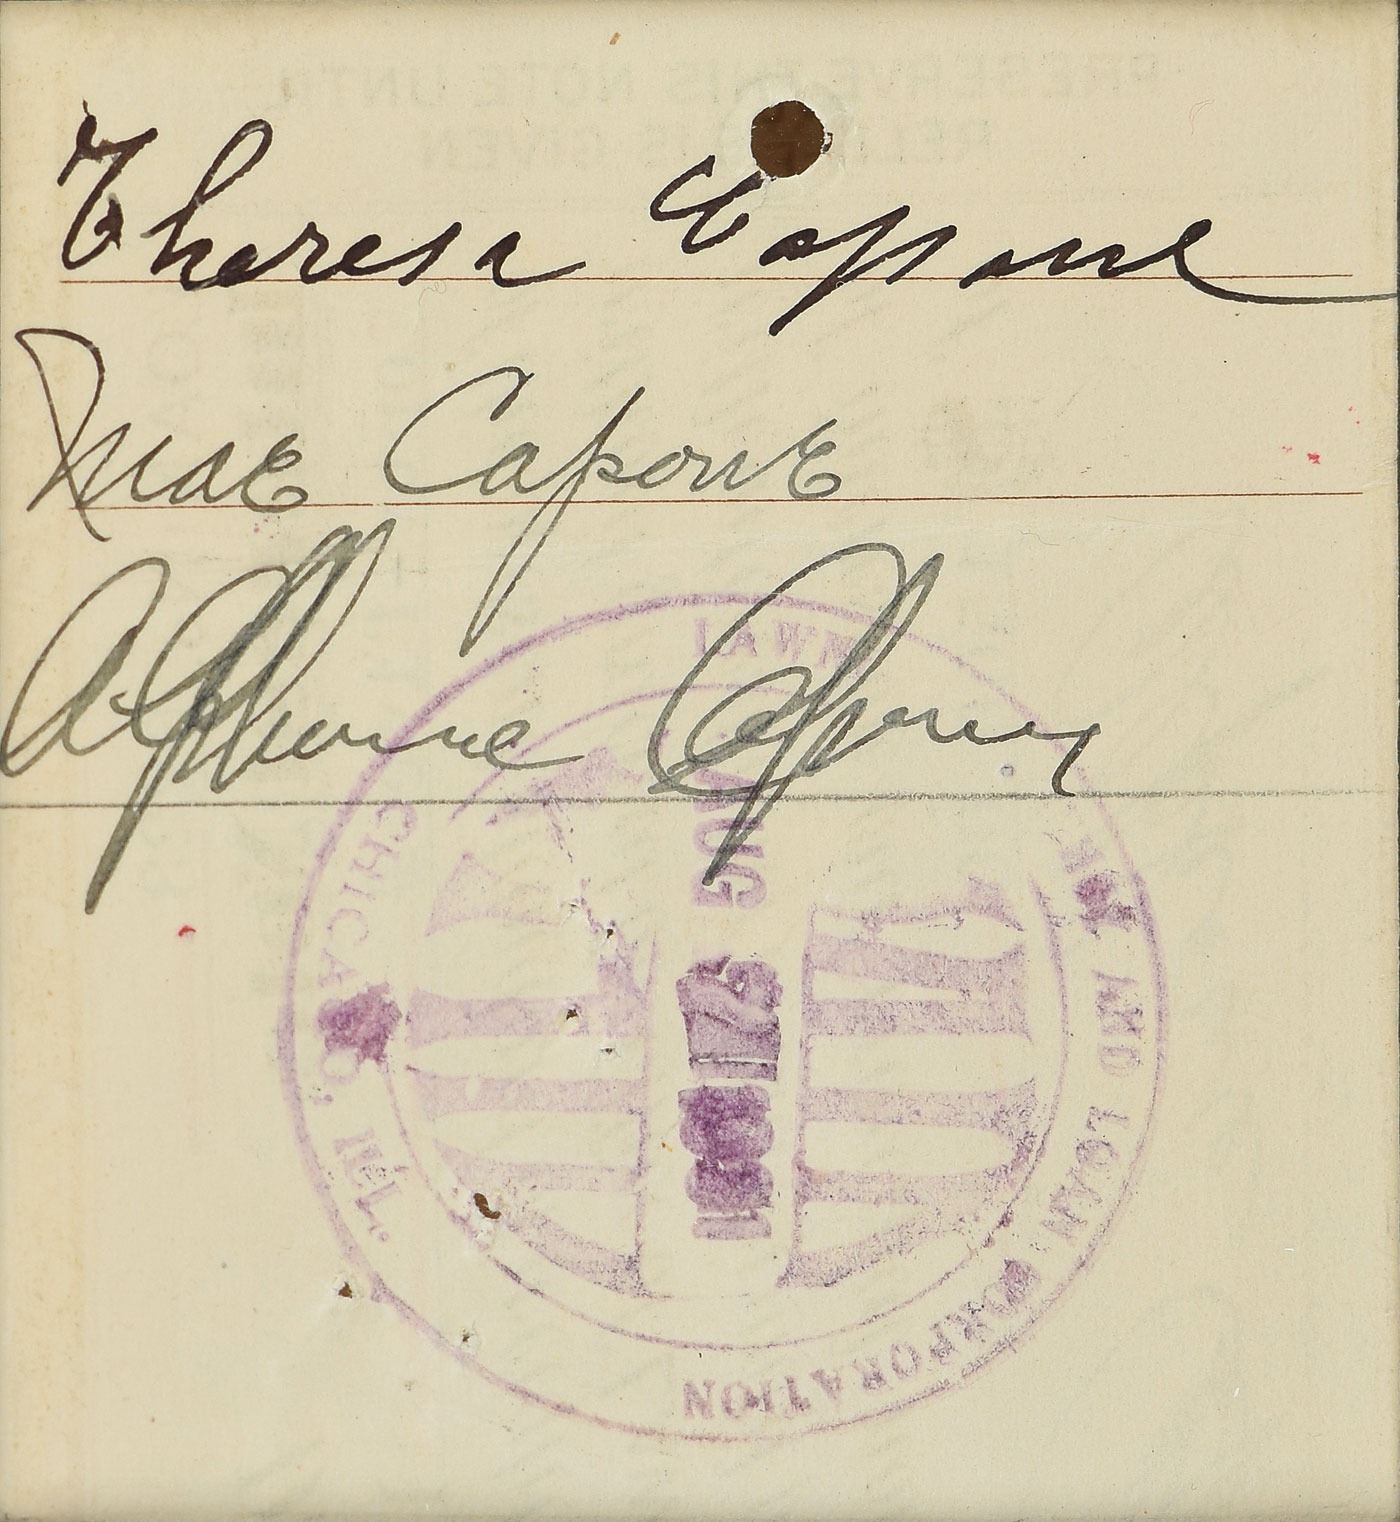 Theresa Capone
Mae Capone
Alphonse Capone
LAWN
AND LOAN CORPORATION
CHICAGO, ILL.
AUG